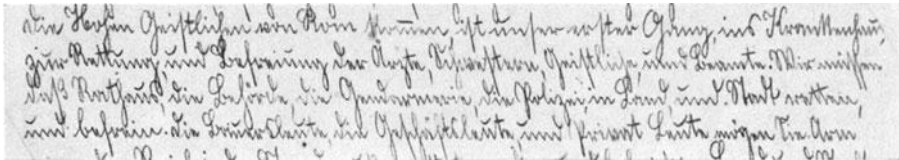 die Hohen Geistlichen von Rom kommen ist unser erster Gdang, ins Krankenhaus,
zur Rettung, und Befreiung der Ärzte, Schwestern, Geistliche, und Beamte. Wir müssen
daß Rathaus, die Behörde, die Gendarmerie, die Polizei, in Land, und Stadt retten,
und befrein. die Bauersleute, die Geschäftsleute, und Privat Leute, mögen Sie Arm